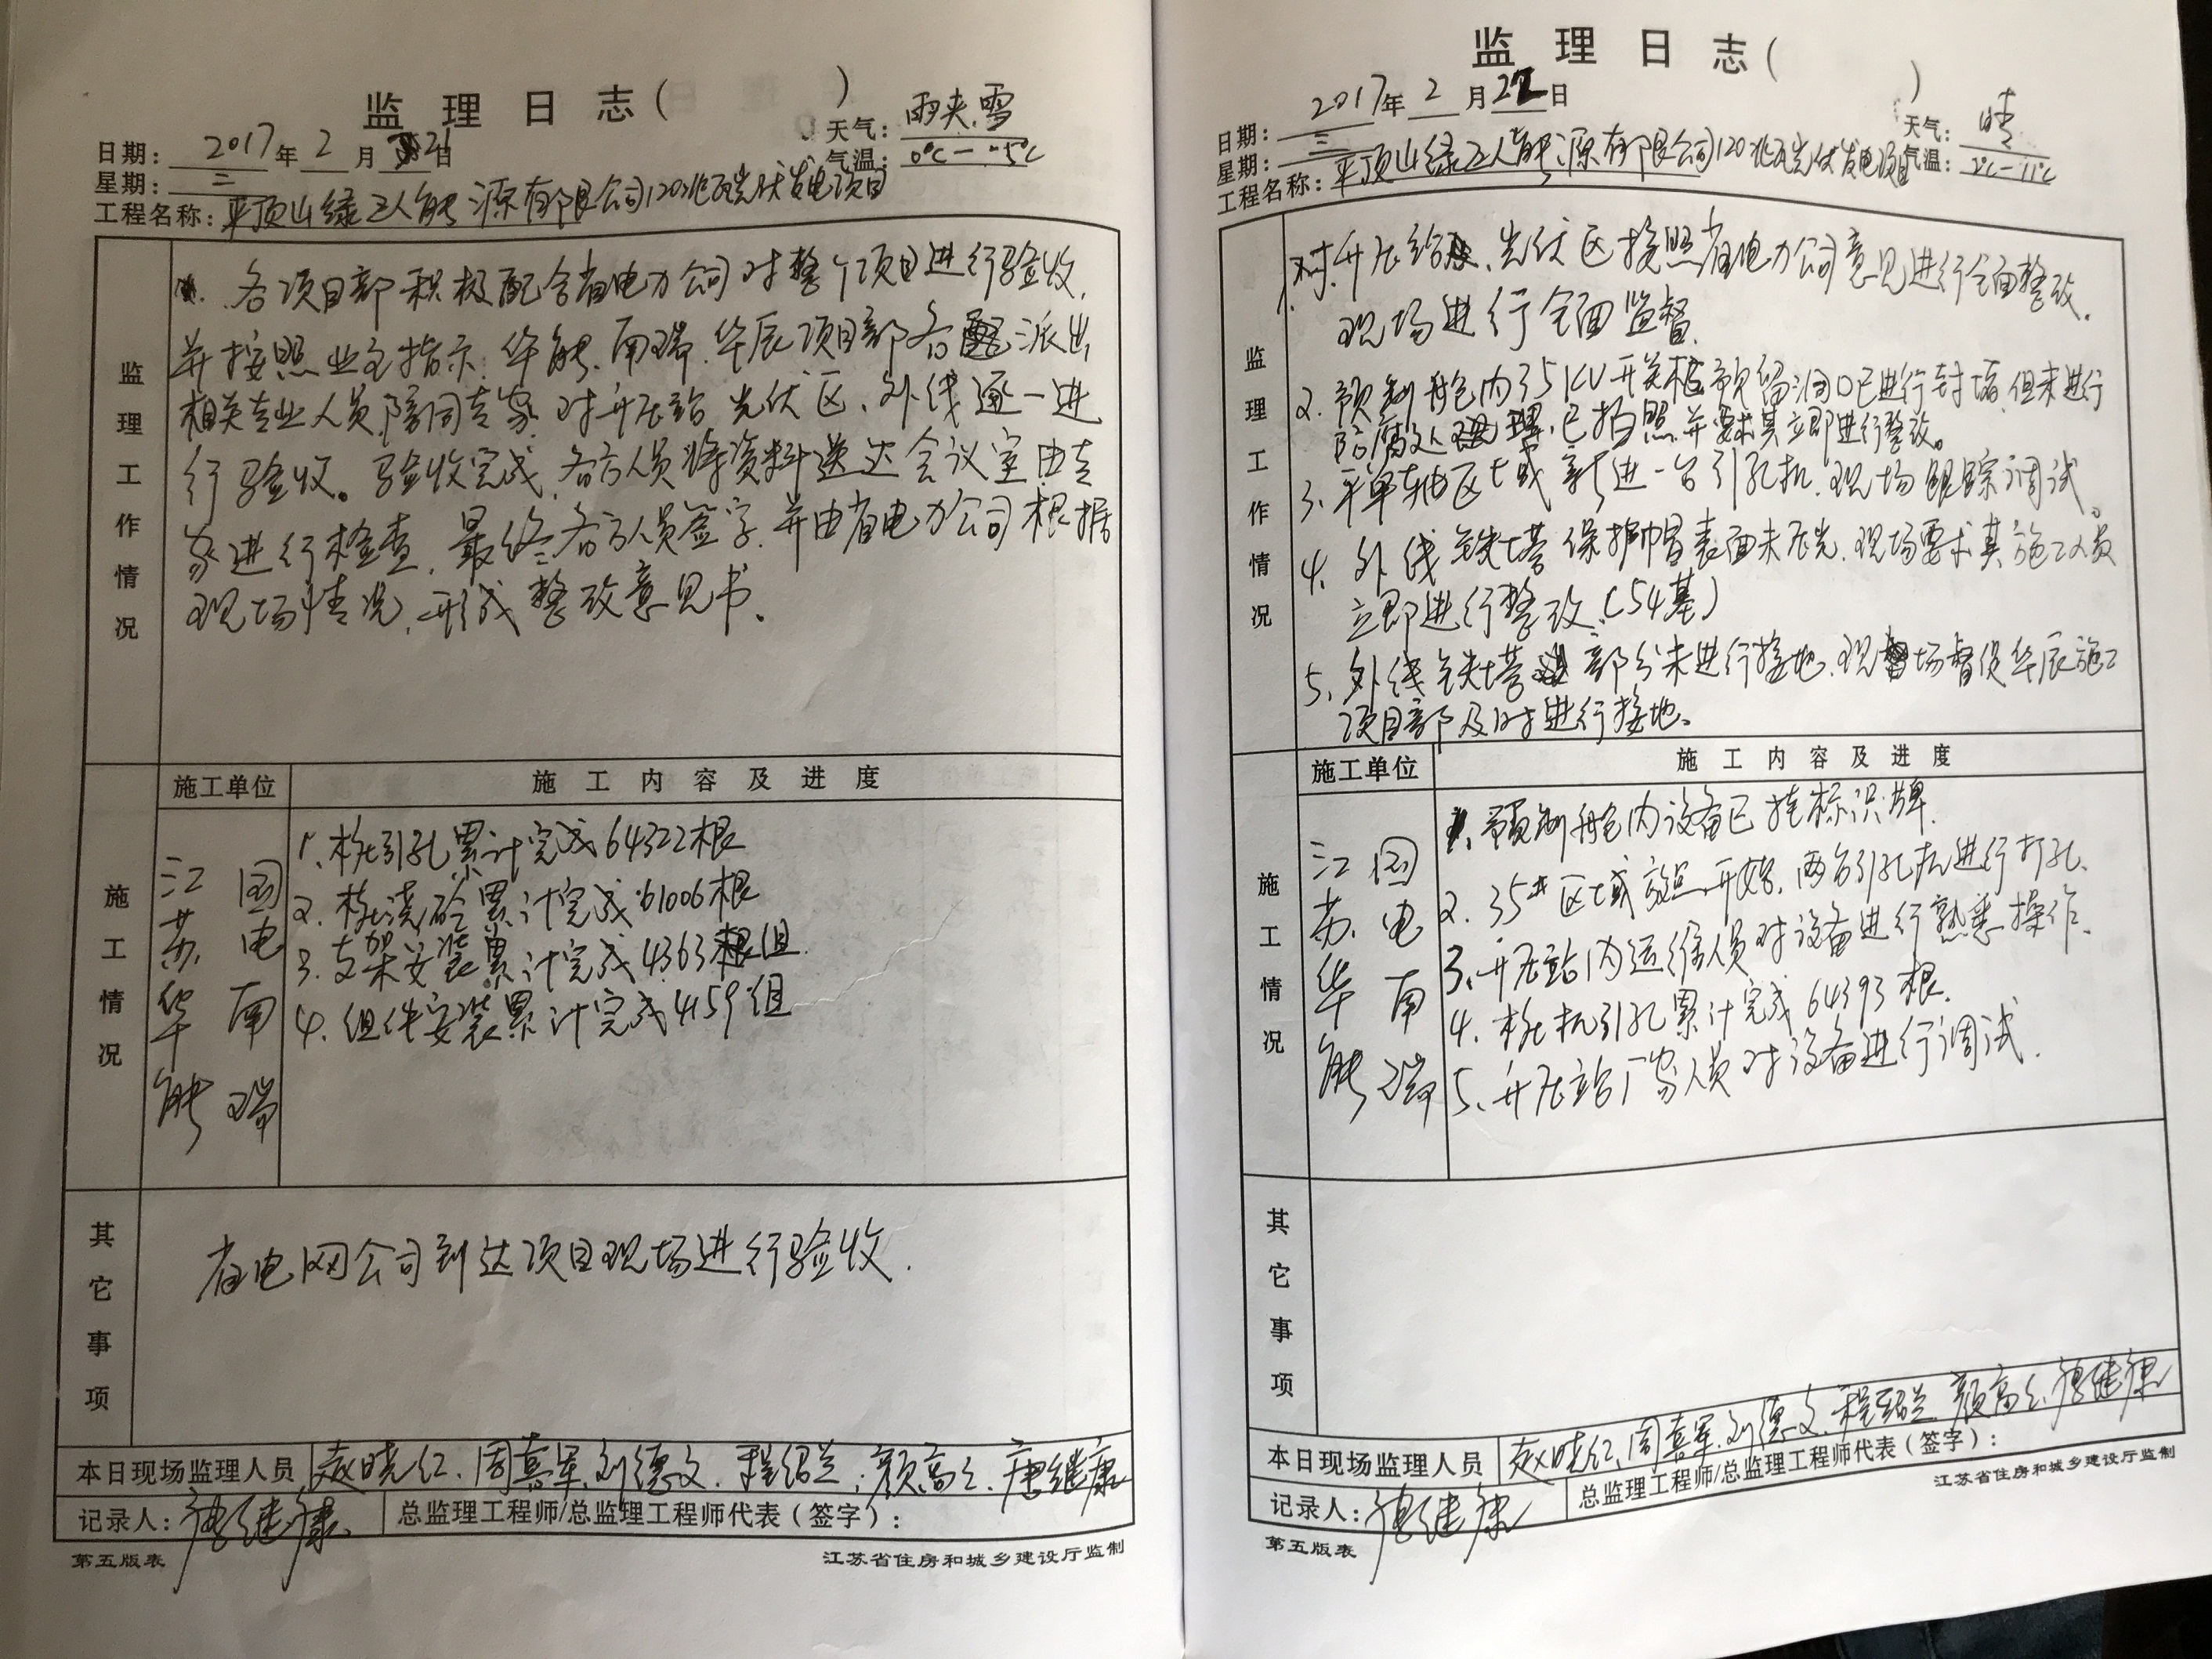 监理日志（ ）
日期： 2017年 2 月 21日
天气： 雨夹雪
星期： 二
气温： 0℃—5℃
工程名称：平顶山绿巨人能源有限公司120兆瓦光伏发电项目
监理工作情况
各项目部积极配合省电力公司对整个项目进行验收，
并按照业主指示，华能、南瑞、华辰项目部各派出
相关专业人员陪同专家对升压站、光伏区、外线逐一进
行验收。验收完成，各方人员将资料送达会议室由专
家进行检查，最终各方人员签字，并由省电力公司根据
现场情况，形成整改意见书。
施工情况
施工单位 施工内容及进度
江苏华能 国电南瑞
1、桩引孔累计完成64322根
2、桩浇砼累计完成61006根
3、支架安装累计完成4363组
4、组件安装累计完成4159组
其它事项
省电网公司到达项目现场进行验收.
本日现场监理人员 赵晓红、周嘉军、刘德文、程绍兰、颜高仁、唐继康
记录人：唐继康 总监理工程师/总监理工程师代表（签字）：
第五版表 江苏省住房和城乡建设厅监制
监理日志（ ）
日期： 2017年 2 月 22日
天气： 晴
星期： 三
气温： 2℃—11℃
工程名称：平顶山绿巨人能源有限公司120兆瓦光伏发电项目
监理工作情况
1、对升压站、光伏区按照省电力公司意见进行全面整改，
现场进行全面监督.
2、预制舱内35KV开关柜预留洞口已进行封堵，但未进行
防腐处理，已拍照并要求其立即进行整改。
3、平单轴区域新进一台引孔机，现场跟踪调试。
4、外线铁塔保护帽表面未压光，现场要求其施工人员
立即进行整改（54基）
5、外线铁塔部分未进行接地，现场督促华辰施工
项目部及时进行接地。
施工情况
施工单位 施工内容及进度
江苏华能 国电南瑞
1、预制舱内设备已挂标识牌.
2、35#区域放点开始，两台引孔机进行打孔.
3、升压站内运维人员对设备进行熟悉操作.
4、桩机引孔累计完成64393根.
5、升压站厂家人员对设备进行调试.
其它事项
本日现场监理人员 赵晓红、周嘉军、刘德文、程绍兰、颜高仁、唐继康
记录人：唐继康 总监理工程师/总监理工程师代表（签字）：
第五版表 江苏省住房和城乡建设厅监制